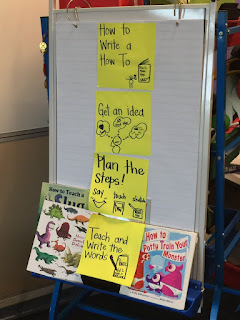 How to
Write a
How To
Get an idea
Plan the
Steps!
Say
touch
sketch
Teach and
Write the
Words
How to Teach a
Slug
How to
Potty Train Your
Monster